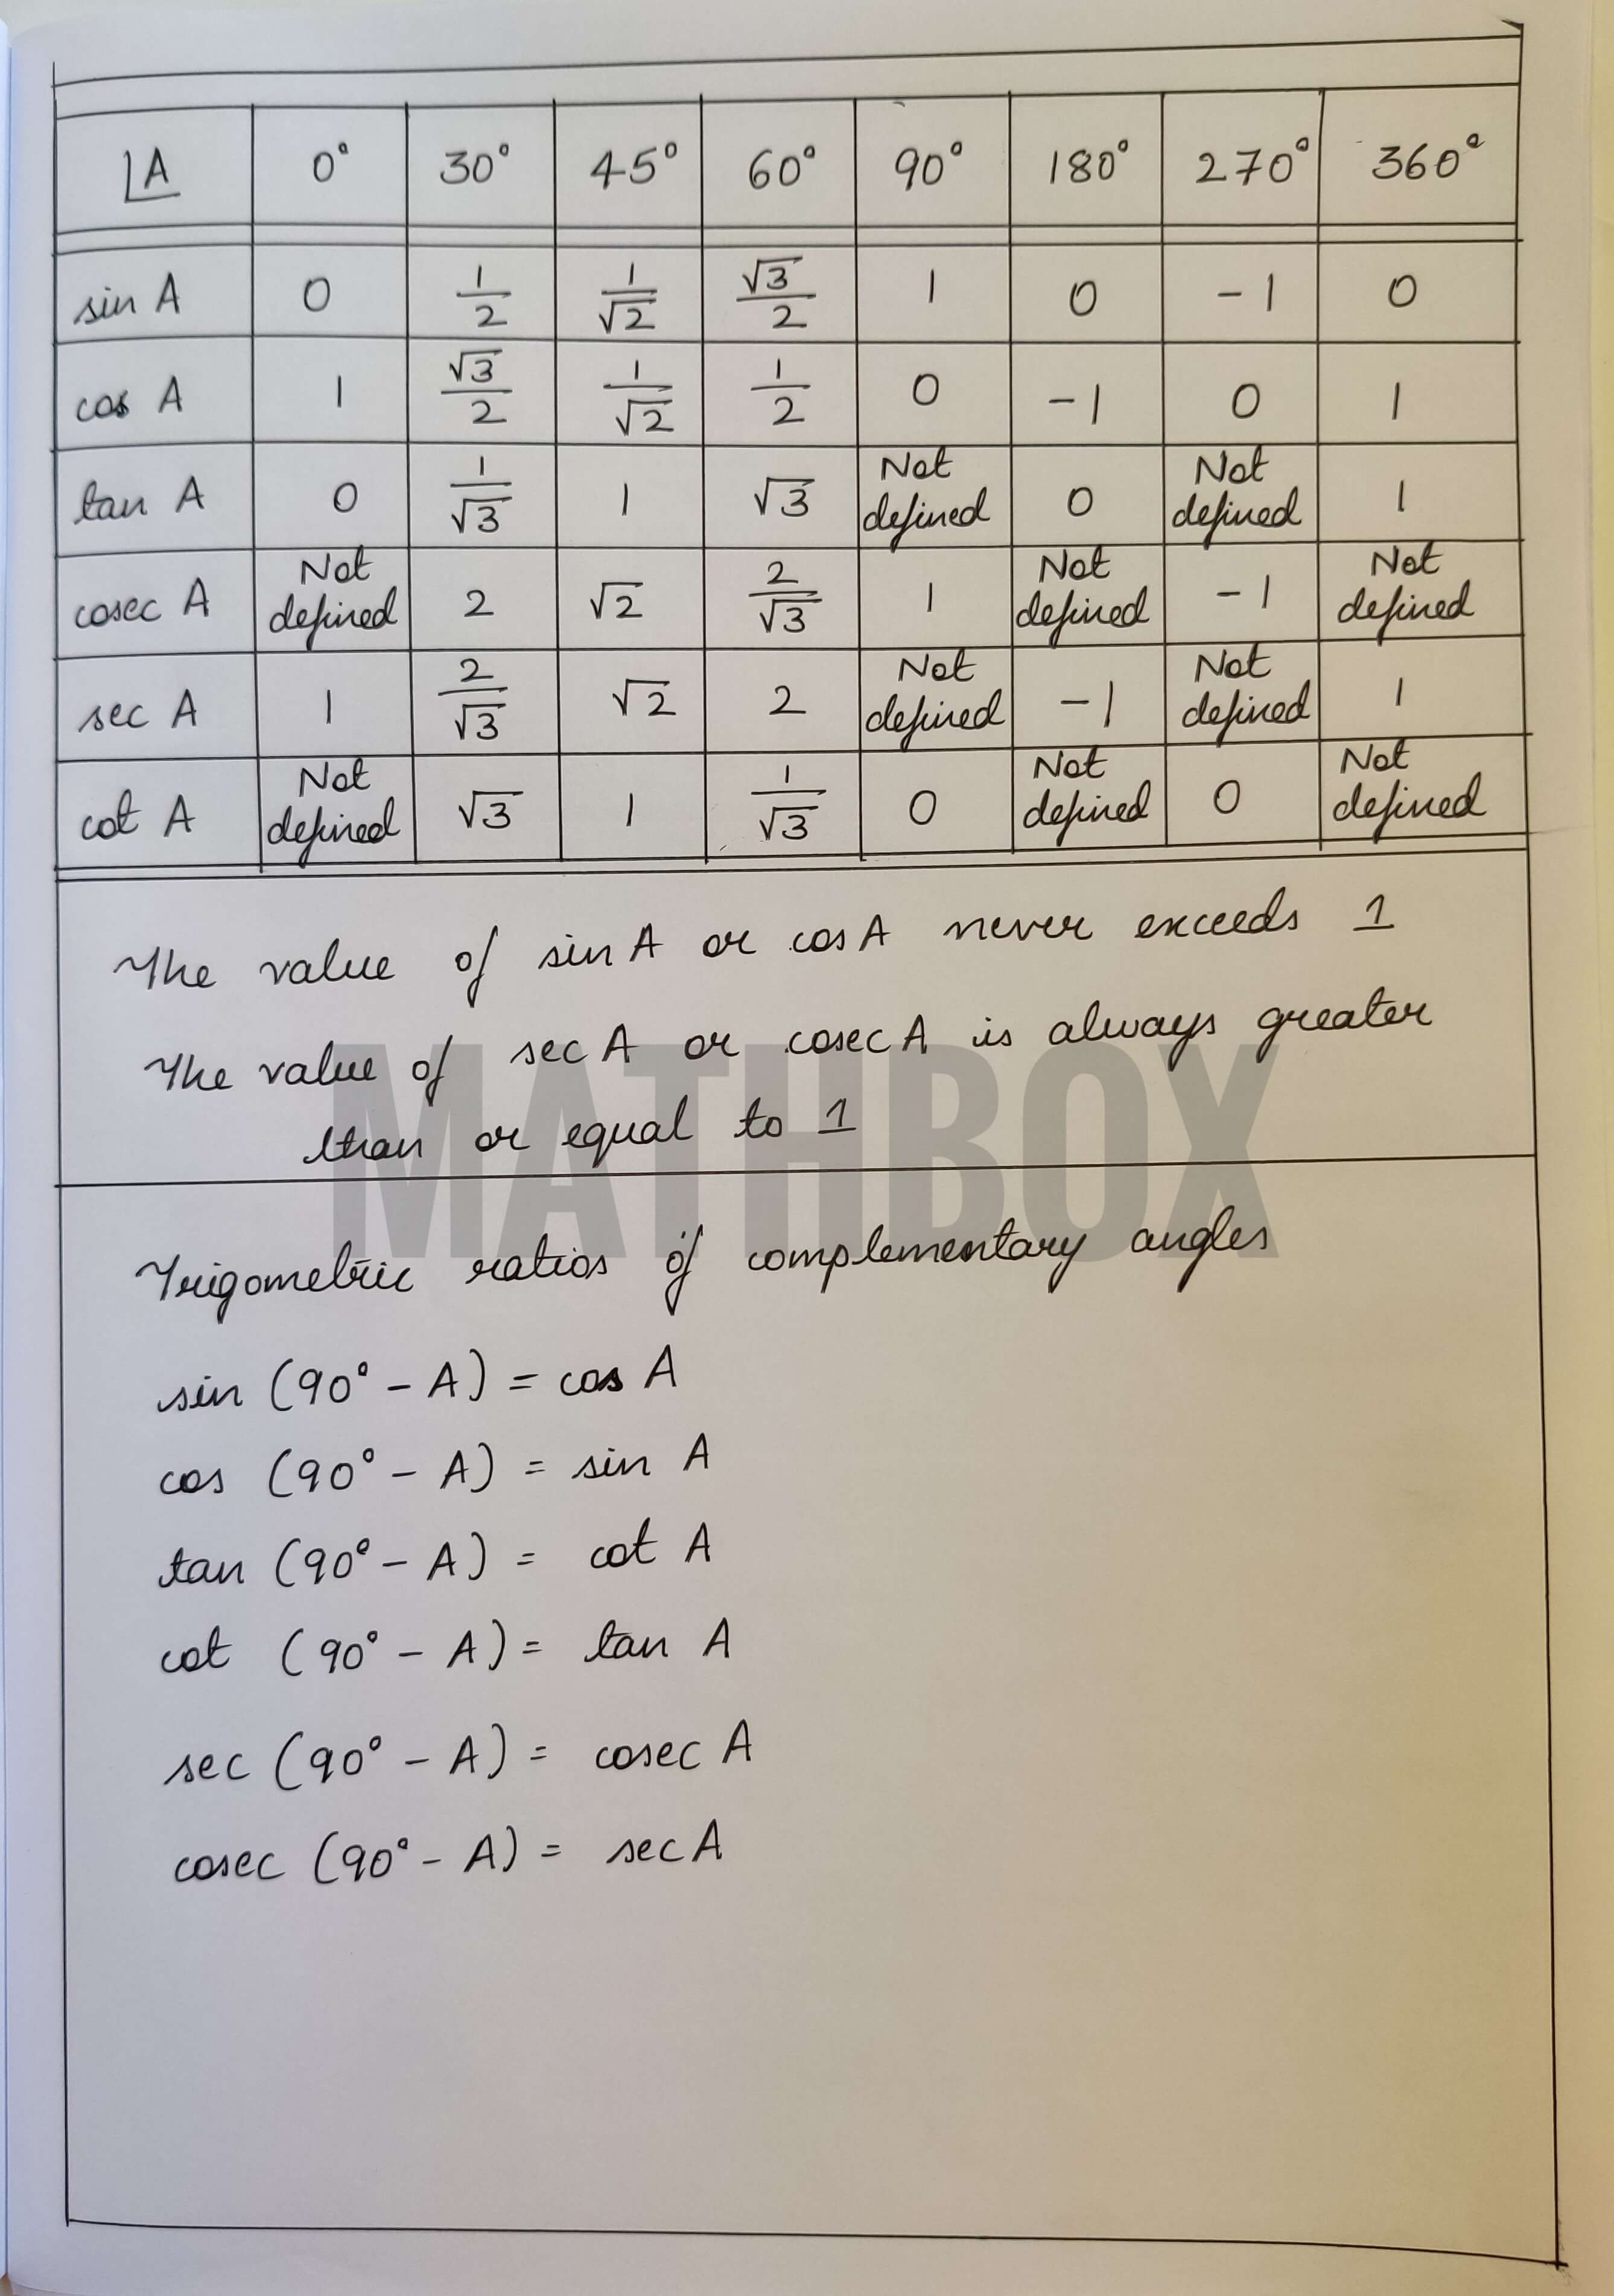 ∠A 0° 30° 45° 60° 90° 180° 270° 360°
sin A 0 1/2 1/√2 √3/2 1 0 -1 0
cos A 1 √3/2 1/√2 1/2 0 -1 0 1
tan A 0 1/√3 1 √3 Not defined 0 Not defined 1
cosec A Not defined 2 √2 2/√3 1 Not defined -1 Not defined
sec A 1 2/√3 √2 2 Not defined -1 Not defined 1
cot A Not defined √3 1 1/√3 0 Not defined 0 Not defined
The value of sin A or cos A never exceeds 1
The value of sec A or cosec A is always greater
than or equal to 1
MATHBOX
Trigometric ratios of complementary angles
sin (90° - A) = cos A
cos (90° - A) = sin A
tan (90° - A) = cot A
cot (90° - A) = tan A
sec (90° - A) = cosec A
cosec (90° - A) = sec A